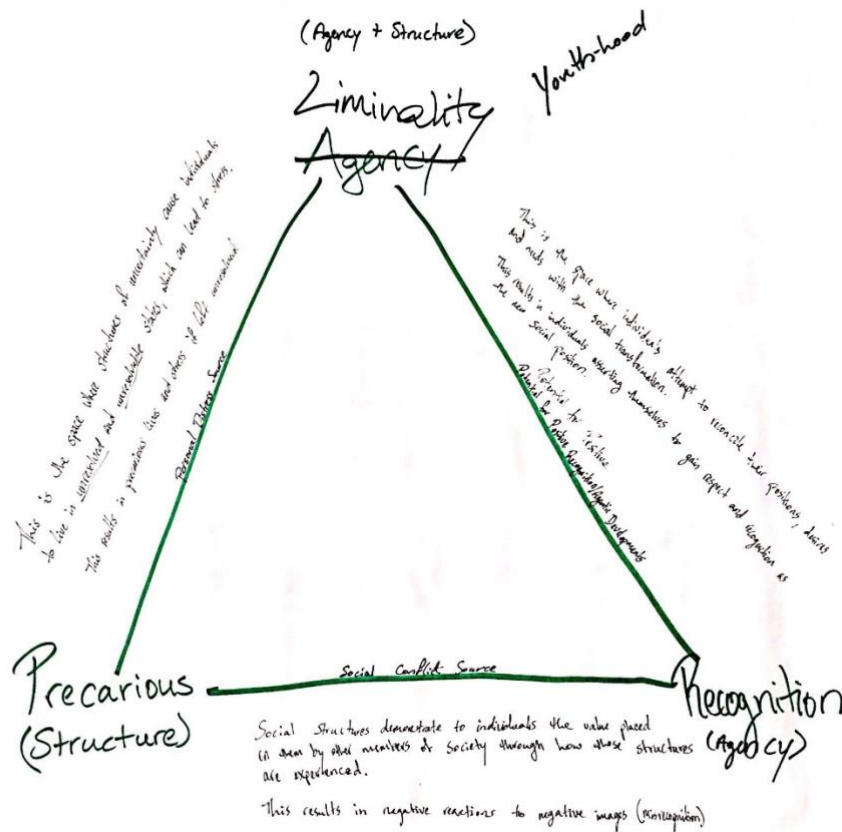 (Agency + Structure)
Youth-hood
Liminality
Agency
This is the space where structures of uncertainty cause individuals
to live in unresolved and unresolvable states, which can lead to stress.
This results in precarious lives and stress if left unresolved
Personal Distress Source
This is the space where individuals attempt to reconcile their positions, desires
and needs with the social transformation.
This results in individuals asserting themselves to gain respect and recognition as
the new social position.
Potential for Positive
Potential for Positive Recognition/Agentic Developments
Precarious
(Structure)
Social Conflict Source
Recognition
(Agency)
Social Structures demonstrate to individuals the value placed
in them by other members of society through how those structures
are experienced.
This results in negative reactions to negative images (misrecognition)